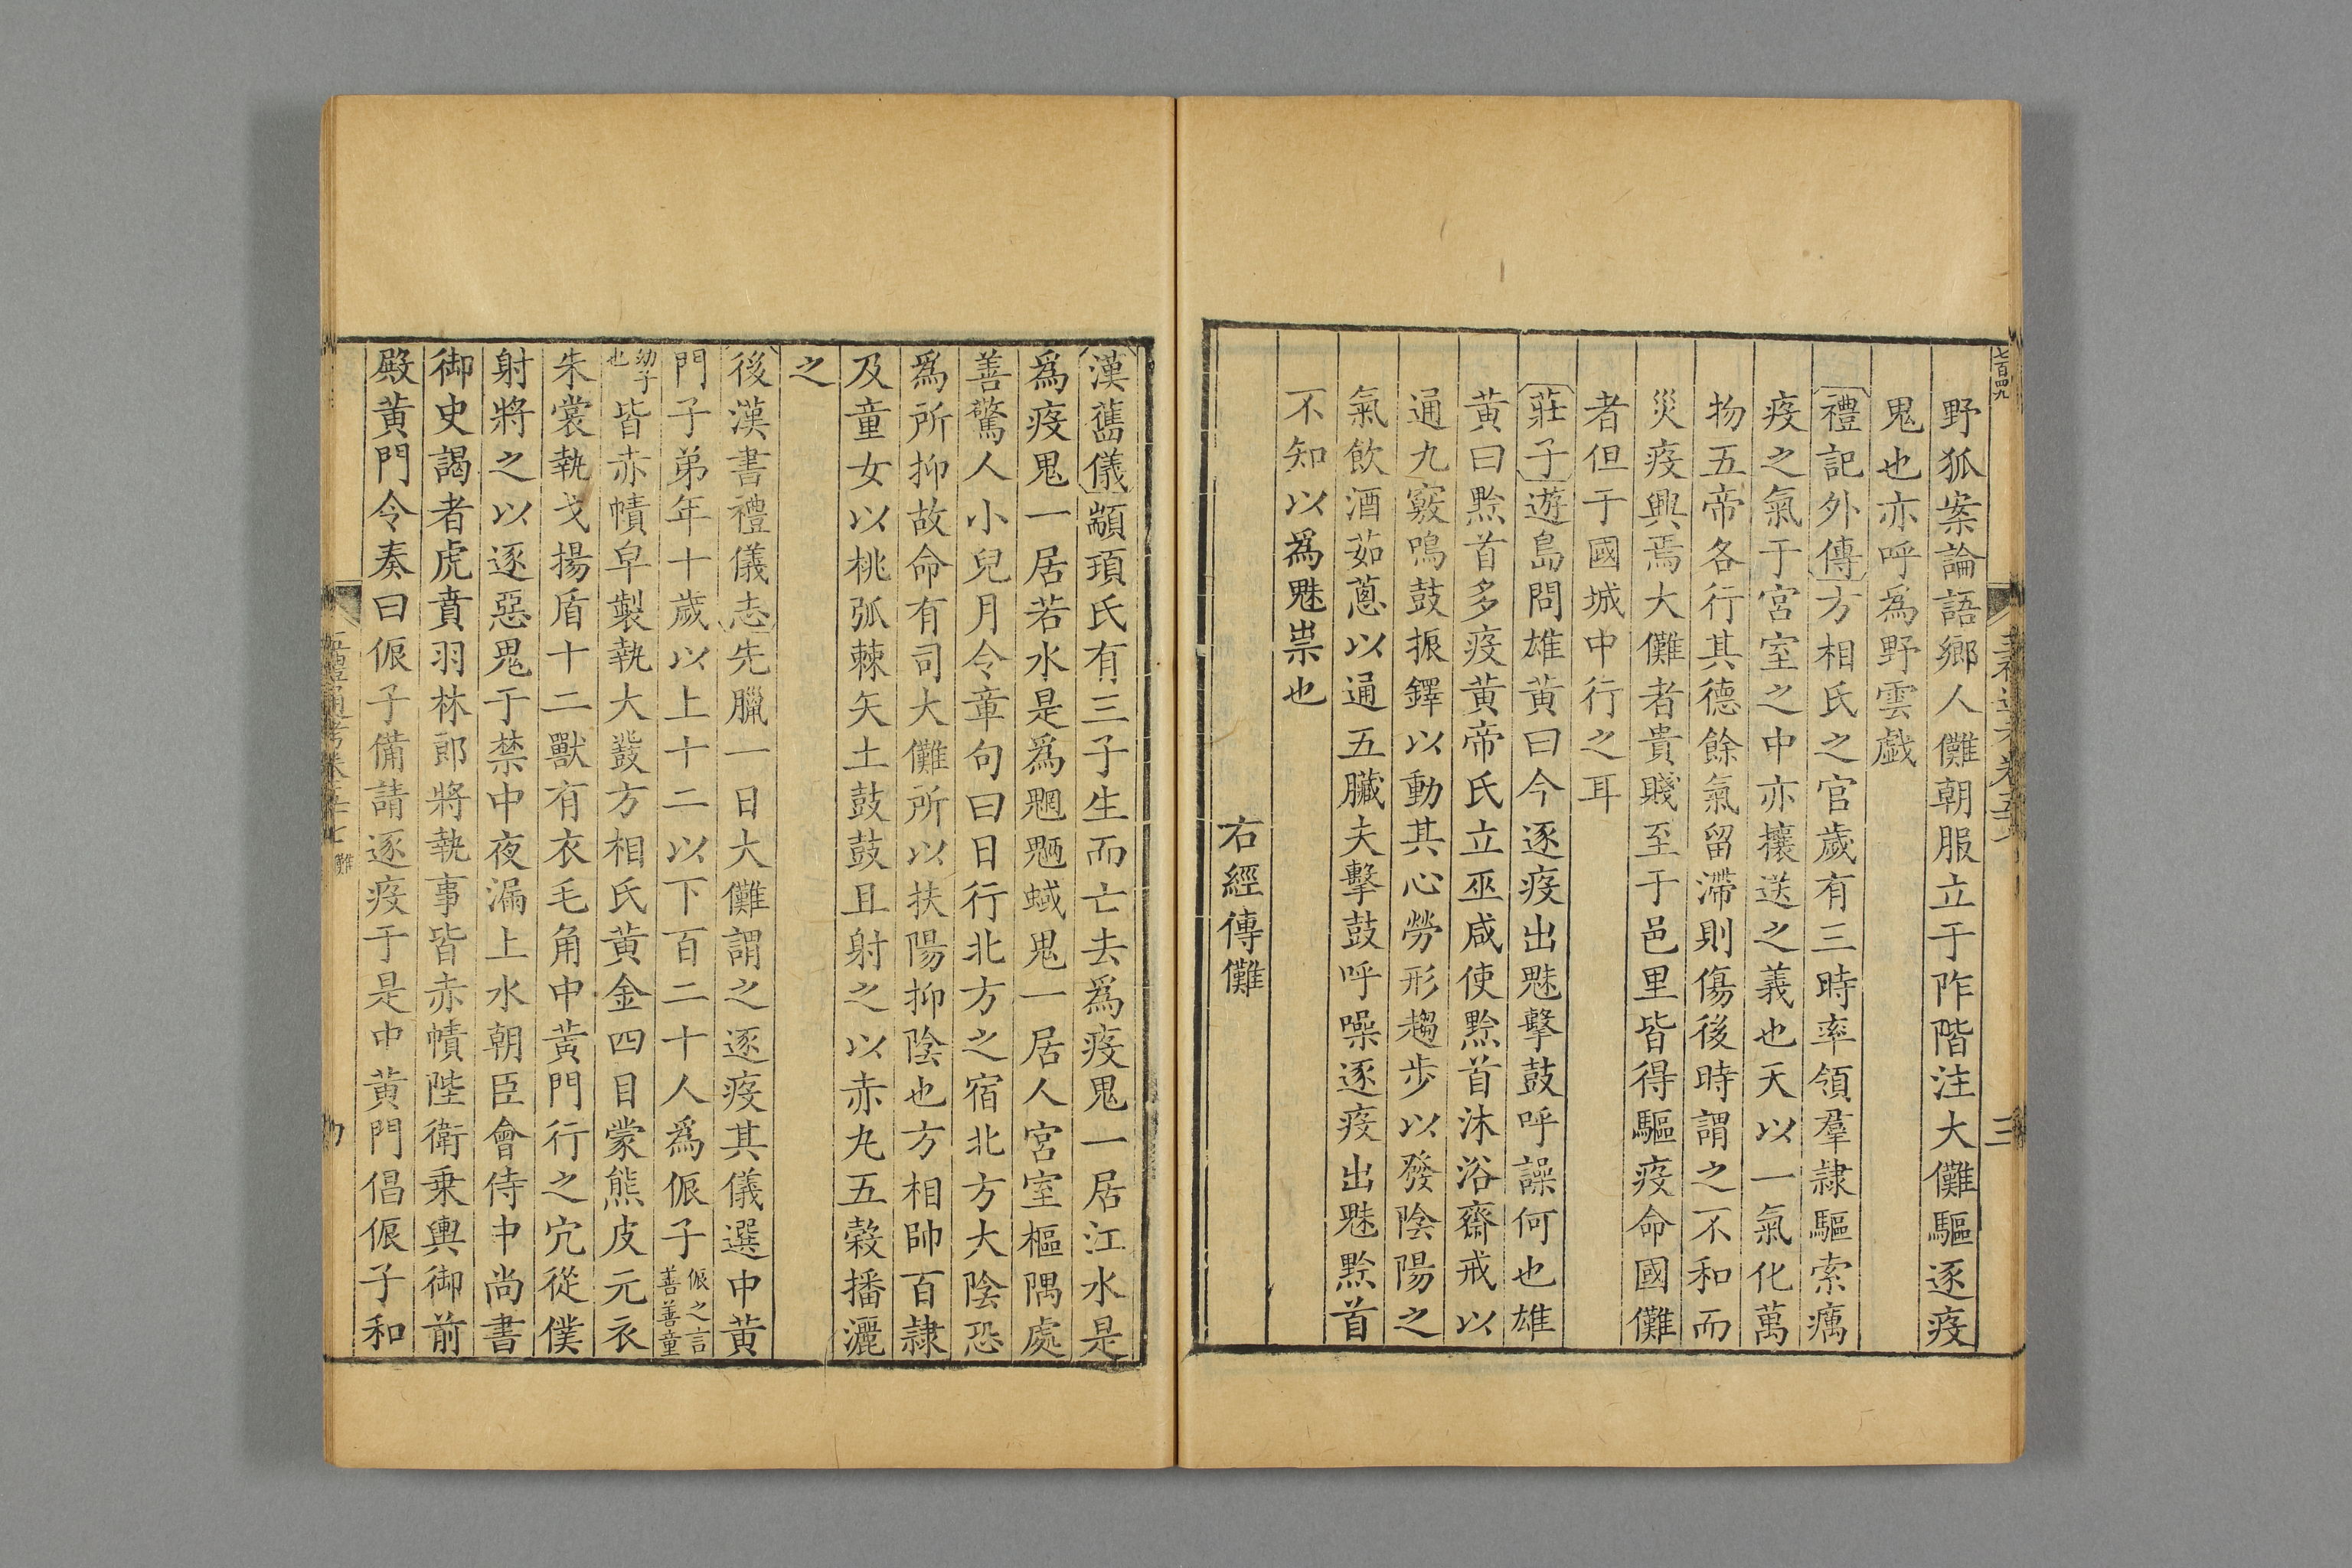 七百四九
野狐案論語鄉人儺朝服立于阼階注大儺驅逐疫
鬼也亦呼爲野雲戱
禮記外傳方相氏之官歲有三時率領羣隷驅索癘
疫之氣于宮室之中亦攘送之義也天以一氣化萬
物五帝各行其德餘氣留滯則傷後時謂之不和而
災疫興焉大儺者貴賤至于邑里皆得驅疫命國儺
者但于國城中行之耳
莊子遊島問雄黃曰今逐疫出魅擊鼓呼譟何也雄
黃曰黔首多疫黃帝氏立巫咸使黔首沐浴齋戒以
通九竅鳴鼓振鐸以動其心勞形趨步以發陰陽之
氣飲酒茹蔥以通五臟夫擊鼓呼噪逐疫出魅黔首
不知以爲魅祟也
右經傳儺
漢舊儀顓頊氏有三子生而亡去爲疫鬼一居江水是
爲疫鬼一居若水是爲魍魎蜮鬼一居人宮室樞隅處
善驚人小兒月令章句曰日行北方之宿北方大陰恐
爲所抑故命有司大儺所以扶陽抑陰也方相帥百隷
及童女以桃弧棘矢土鼓鼓且射之以赤丸五穀播灑
之
後漢書禮儀志先臘一日大儺謂之逐疫其儀選中黃
門子弟年十歲以上十二以下百二十人爲侲子侲之言善善童
幼子也皆赤幘皁製執大鼗方相氏黃金四目蒙熊皮元衣
朱裳執戈揚盾十二獸有衣毛角中黃門行之宂從僕
射將之以逐惡鬼于禁中夜漏上水朝臣會侍中尚書
御史謁者虎賁羽林郎將執事皆赤幘陛衛乗輿御前
殿黃門令奏曰侲子備請逐疫于是中黃門倡侲子和